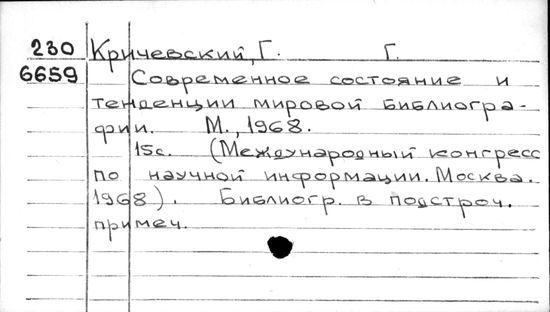 230 Кричевский, Г. Г.
6659 Современное состояние и
тенденции мировой библиогра-
фии. М., 1968.
15с. (Международный конгресс
по научной информации. Москва.
1968). Библиогр. в подстроч.
примеч.